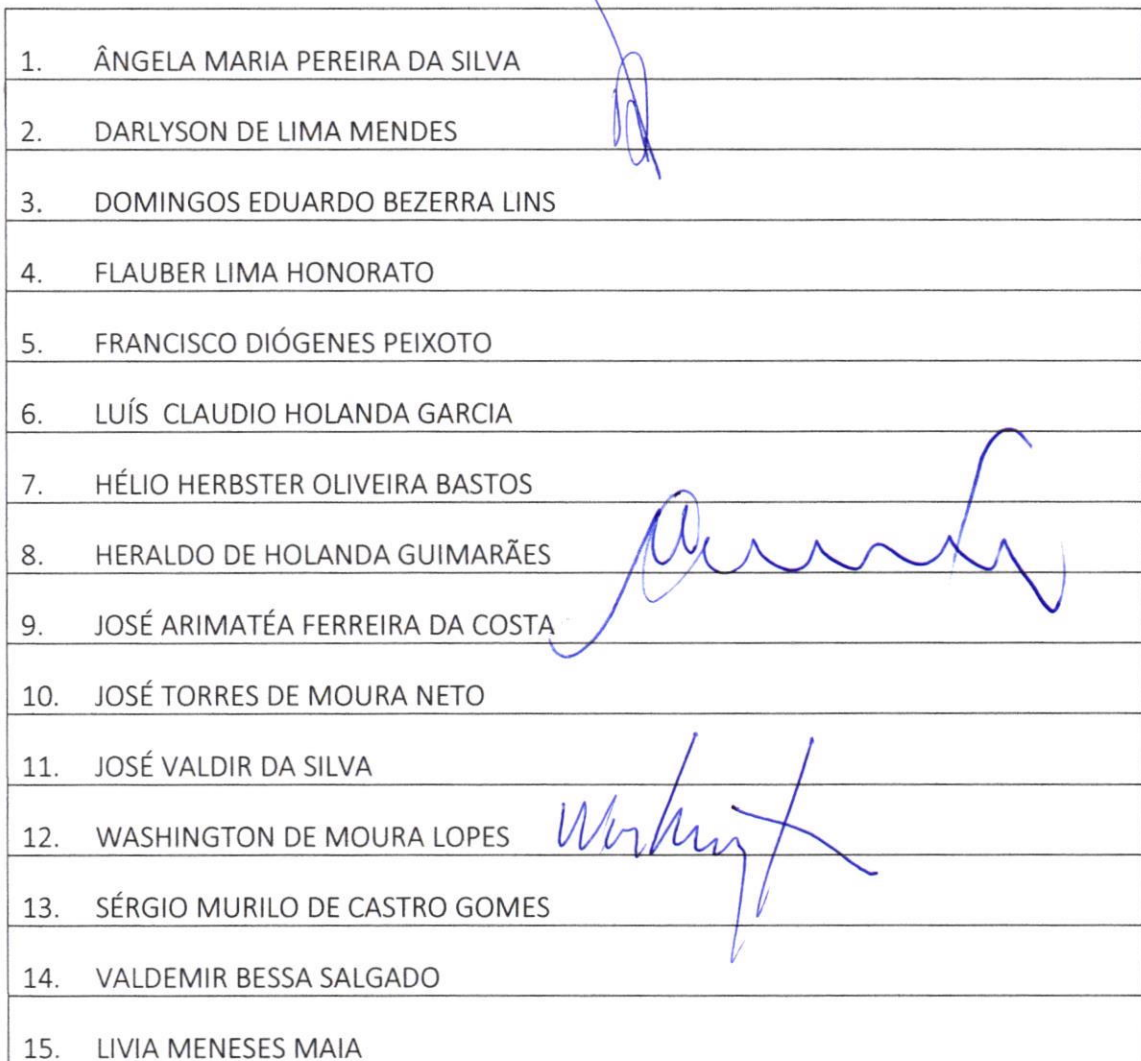 1. ÂNGELA MARIA PEREIRA DA SILVA
2. DARLYSON DE LIMA MENDES
3. DOMINGOS EDUARDO BEZERRA LINS
4. FLAUBER LIMA HONORATO
5. FRANCISCO DIÓGENES PEIXOTO
6. LUÍS CLAUDIO HOLANDA GARCIA
7. HÉLIO HERBSTER OLIVEIRA BASTOS
8. HERALDO DE HOLANDA GUIMARÃES
9. JOSÉ ARIMATÉA FERREIRA DA COSTA
10. JOSÉ TORRES DE MOURA NETO
11. JOSÉ VALDIR DA SILVA
12. WASHINGTON DE MOURA LOPES
13. SÉRGIO MURILO DE CASTRO GOMES
14. VALDEMIR BESSA SALGADO
15. LIVIA MENESES MAIA